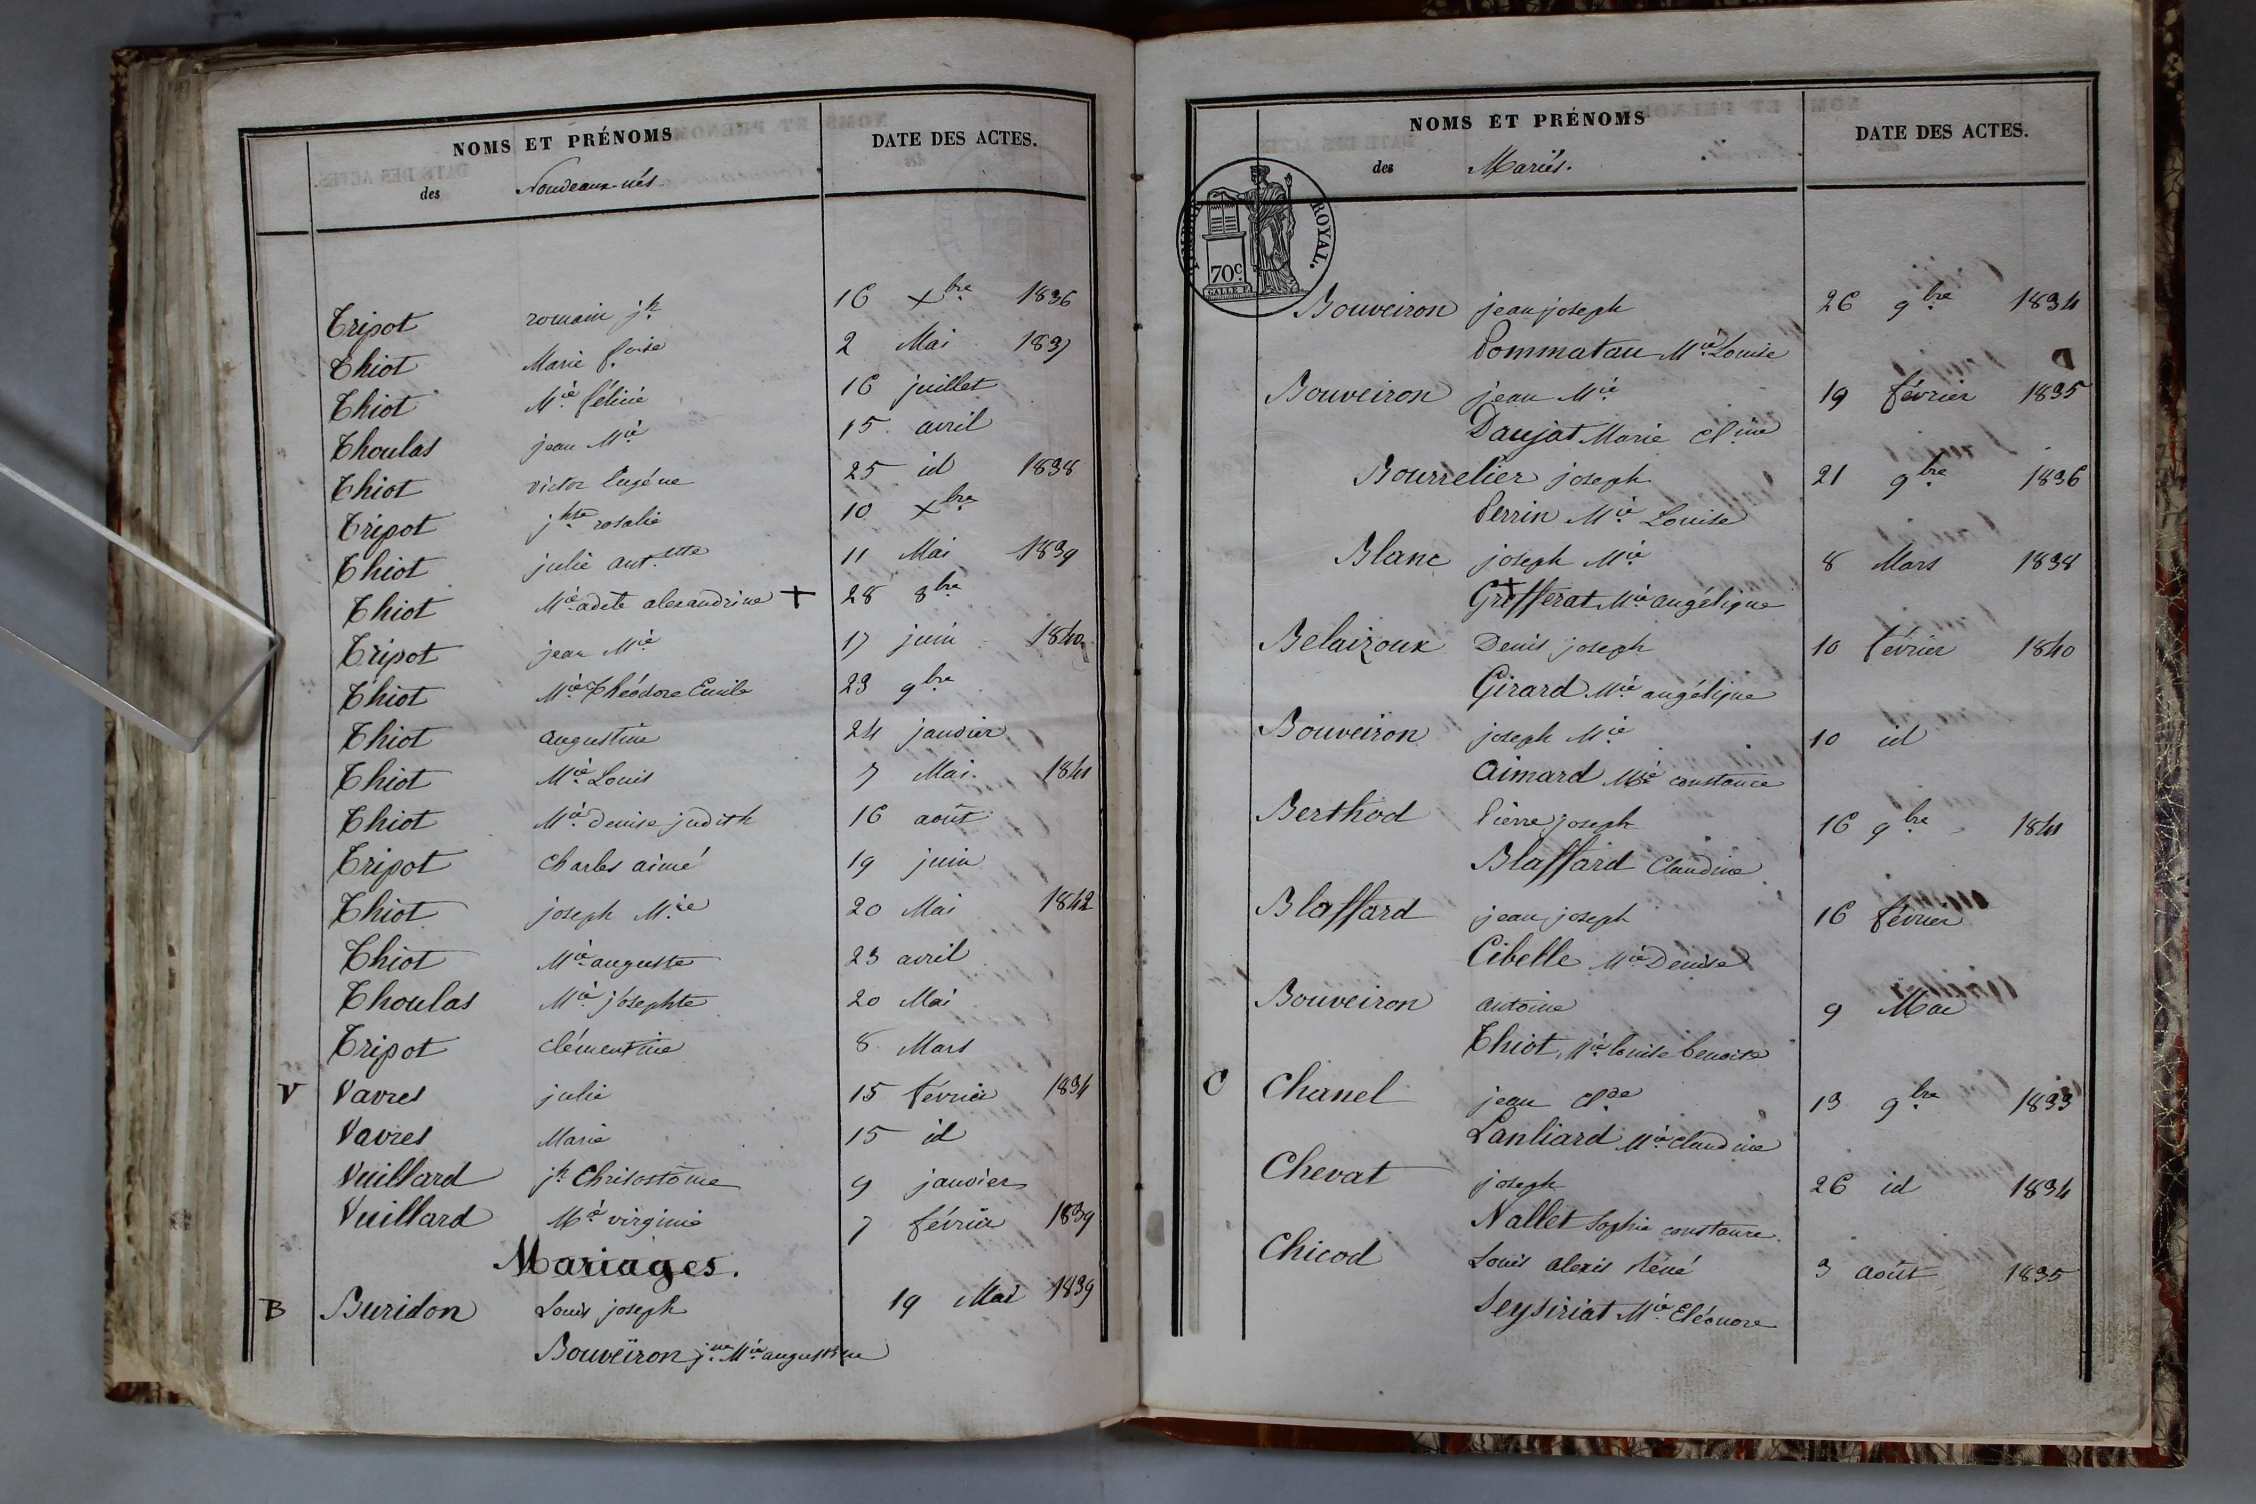 NOMS ET PRÉNOMS DATE DES ACTES.
des Nouveaux-nés
Tripot romain jh 16 Xbre 1836
Thiot Marie f.oise 2 Mai 1837
Thiot Mie félicie 16 juillet
Thoulas jean Mie 15 avril
Thiot victor Eugéne 25 id 1838
Tripot jhte rosalie 10 Xbre
Thiot julie ant.ette 11 Mai 1839
Thiot Mie adele alexandrine + 28 8bre
Tripot jean Mie 17 juin 1840
Thiot Mie Théodore Emile 23 9bre
Thiot augustine 24 janvier
Thiot Mie Louis 7 Mai. 1841
Thiot Mie denise judith 16 août
Tripot Charles aimé 19 juin
Thiot joseph Mie 20 Mai 1842
Thiot Mie auguste 23 avril
Thoulas Mie josephte 20 Mai
Tripot clémentine 8 Mars
V Vavres julie 15 février 1834
Vavres Marie 15 id
Vuillard jh Chrisostôme 9 janvier
Vuillard Mie virginie 7 février 1839
Mariages.
B Buridon Louis joseph 19 Mai 1839
Bouveïron jne Mie augustine
NOMS ET PRÉNOMS DATE DES ACTES.
des Mariés.
TIMBRE ROYAL.
70c.
GALLE F.
Bouveiron jean joseph 26 9bre 1834
Pommatau Mie Louise
Bouveiron jean Mie 19 février 1835
Daujat Marie Cl.ine
Bourrelier joseph 21 9bre 1836
Perrin Mie Louise
Blanc joseph Mie 8 Mars 1838
Grifferat Mie angélique
Belairoux Denis joseph 10 février 1840
Girard Mie angélique
Bouveiron joseph Mie 10 id
Aimard Mie constance
Berthod Pierre joseph 16 9bre 1841
Blaffard Claudine
Blaffard jean joseph 16 février
Cibelle Mie Denise
Bouveiron antoine 9 Mai
Thiot Mie louise benoite
C Chanel jean Clde 13 9bre 1833
Lanliard Mie claudine
Chevat joseph 26 id 1834
Nallet Sophie constance.
Chicod Louis alexis René 3 août 1835
Seysiriat Mie Eléonore